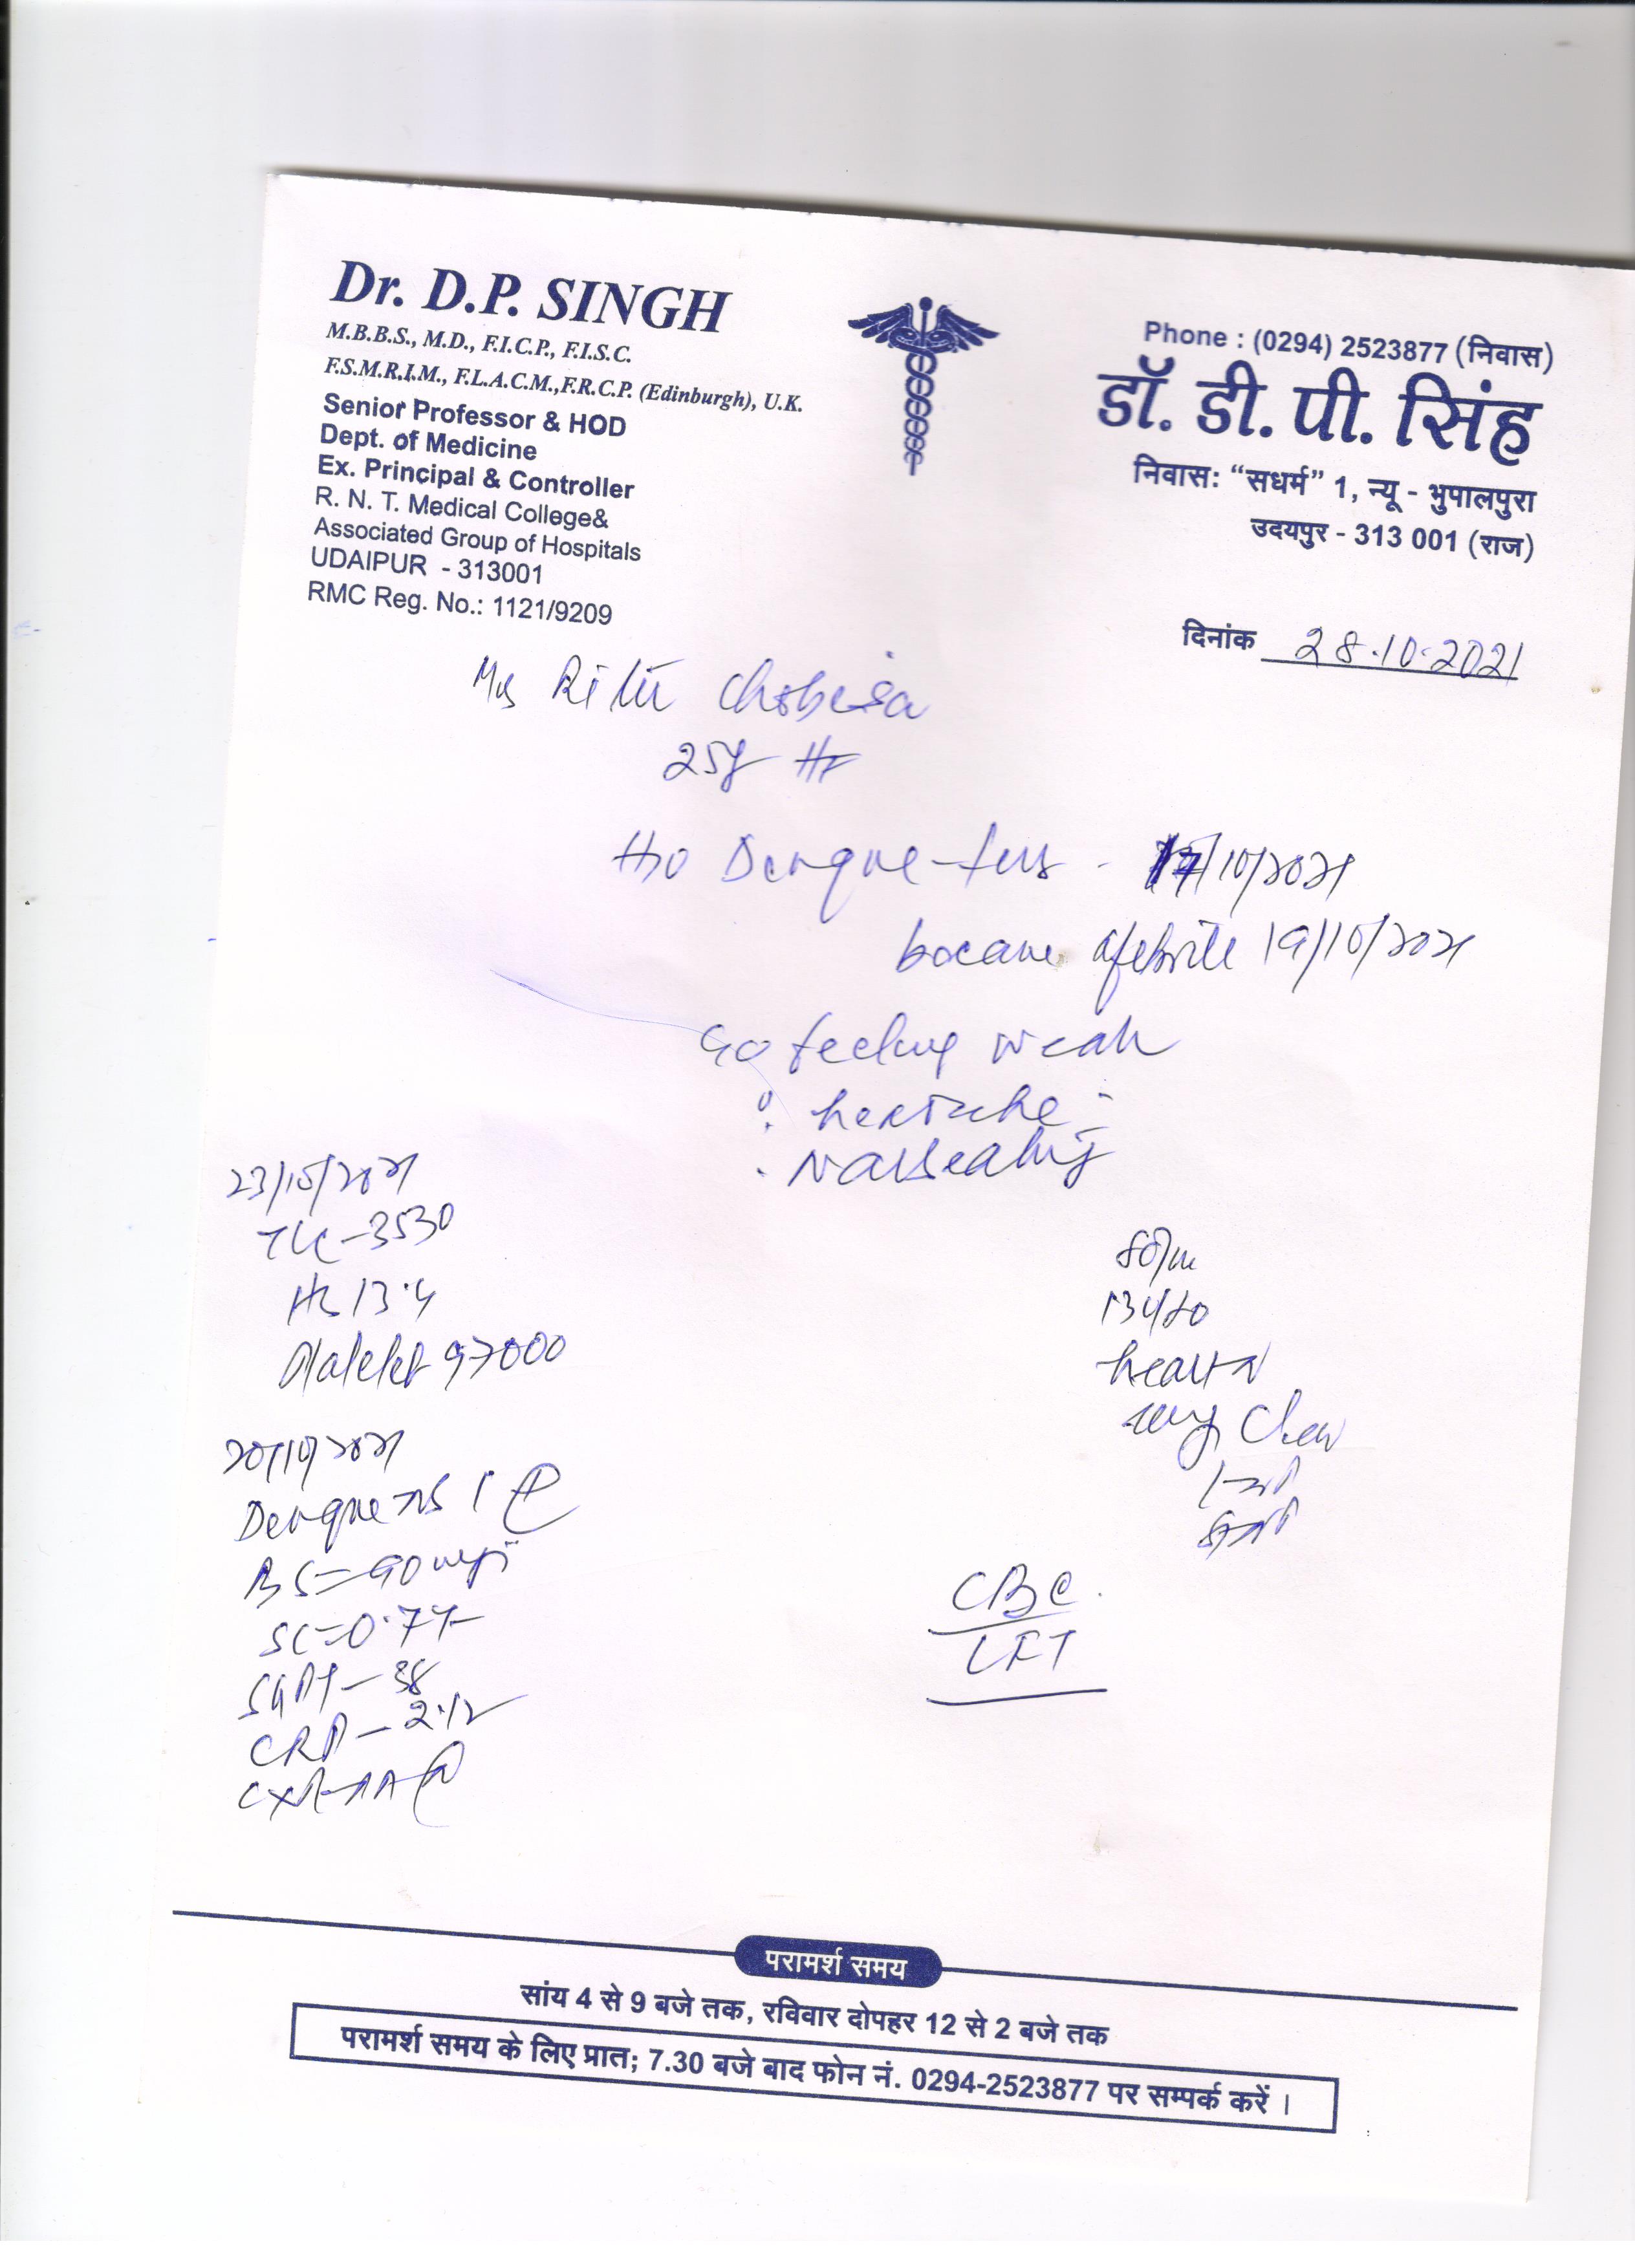 Dr. D.P. SINGH
M.B.B.S., M.D., F.I.C.P., F.I.S.C.
F.S.M.R.I.M., F.L.A.C.M.,F.R.C.P. (Edinburgh), U.K.
Senior Professor & HOD
Dept. of Medicine
Ex. Principal & Controller
R. N. T. Medical College&
Associated Group of Hospitals
UDAIPUR - 313001
RMC Reg. No.: 1121/9209
Phone : (0294) 2523877 (निवास)
डॉ. डी. पी. सिंह
निवास: “सधर्म” 1, न्यू - भुपालपुरा
उदयपुर - 313 001 (राज)
दिनांक 28.10.2021
Ritu Chobisa
25y
H/O Dengue fever - /10/2021
became afebrile 19/10/2021
C/o feeling weak
: headache
. Nauseating
23/10/2021
TLC - 3530
Hb 13.4
Platelet 97000
20/10/2021
Dengue NS 1
BS = 90
SC = 0.77
SGPT - 38
CRP - 2.12
CXR - PA
80/m
134/80
heart N
Clear
CBC
LFT
परामर्श समय
सांय 4 से 9 बजे तक, रविवार दोपहर 12 से 2 बजे तक
परामर्श समय के लिए प्रात; 7.30 बजे बाद फोन नं. 0294-2523877 पर सम्पर्क करें ।